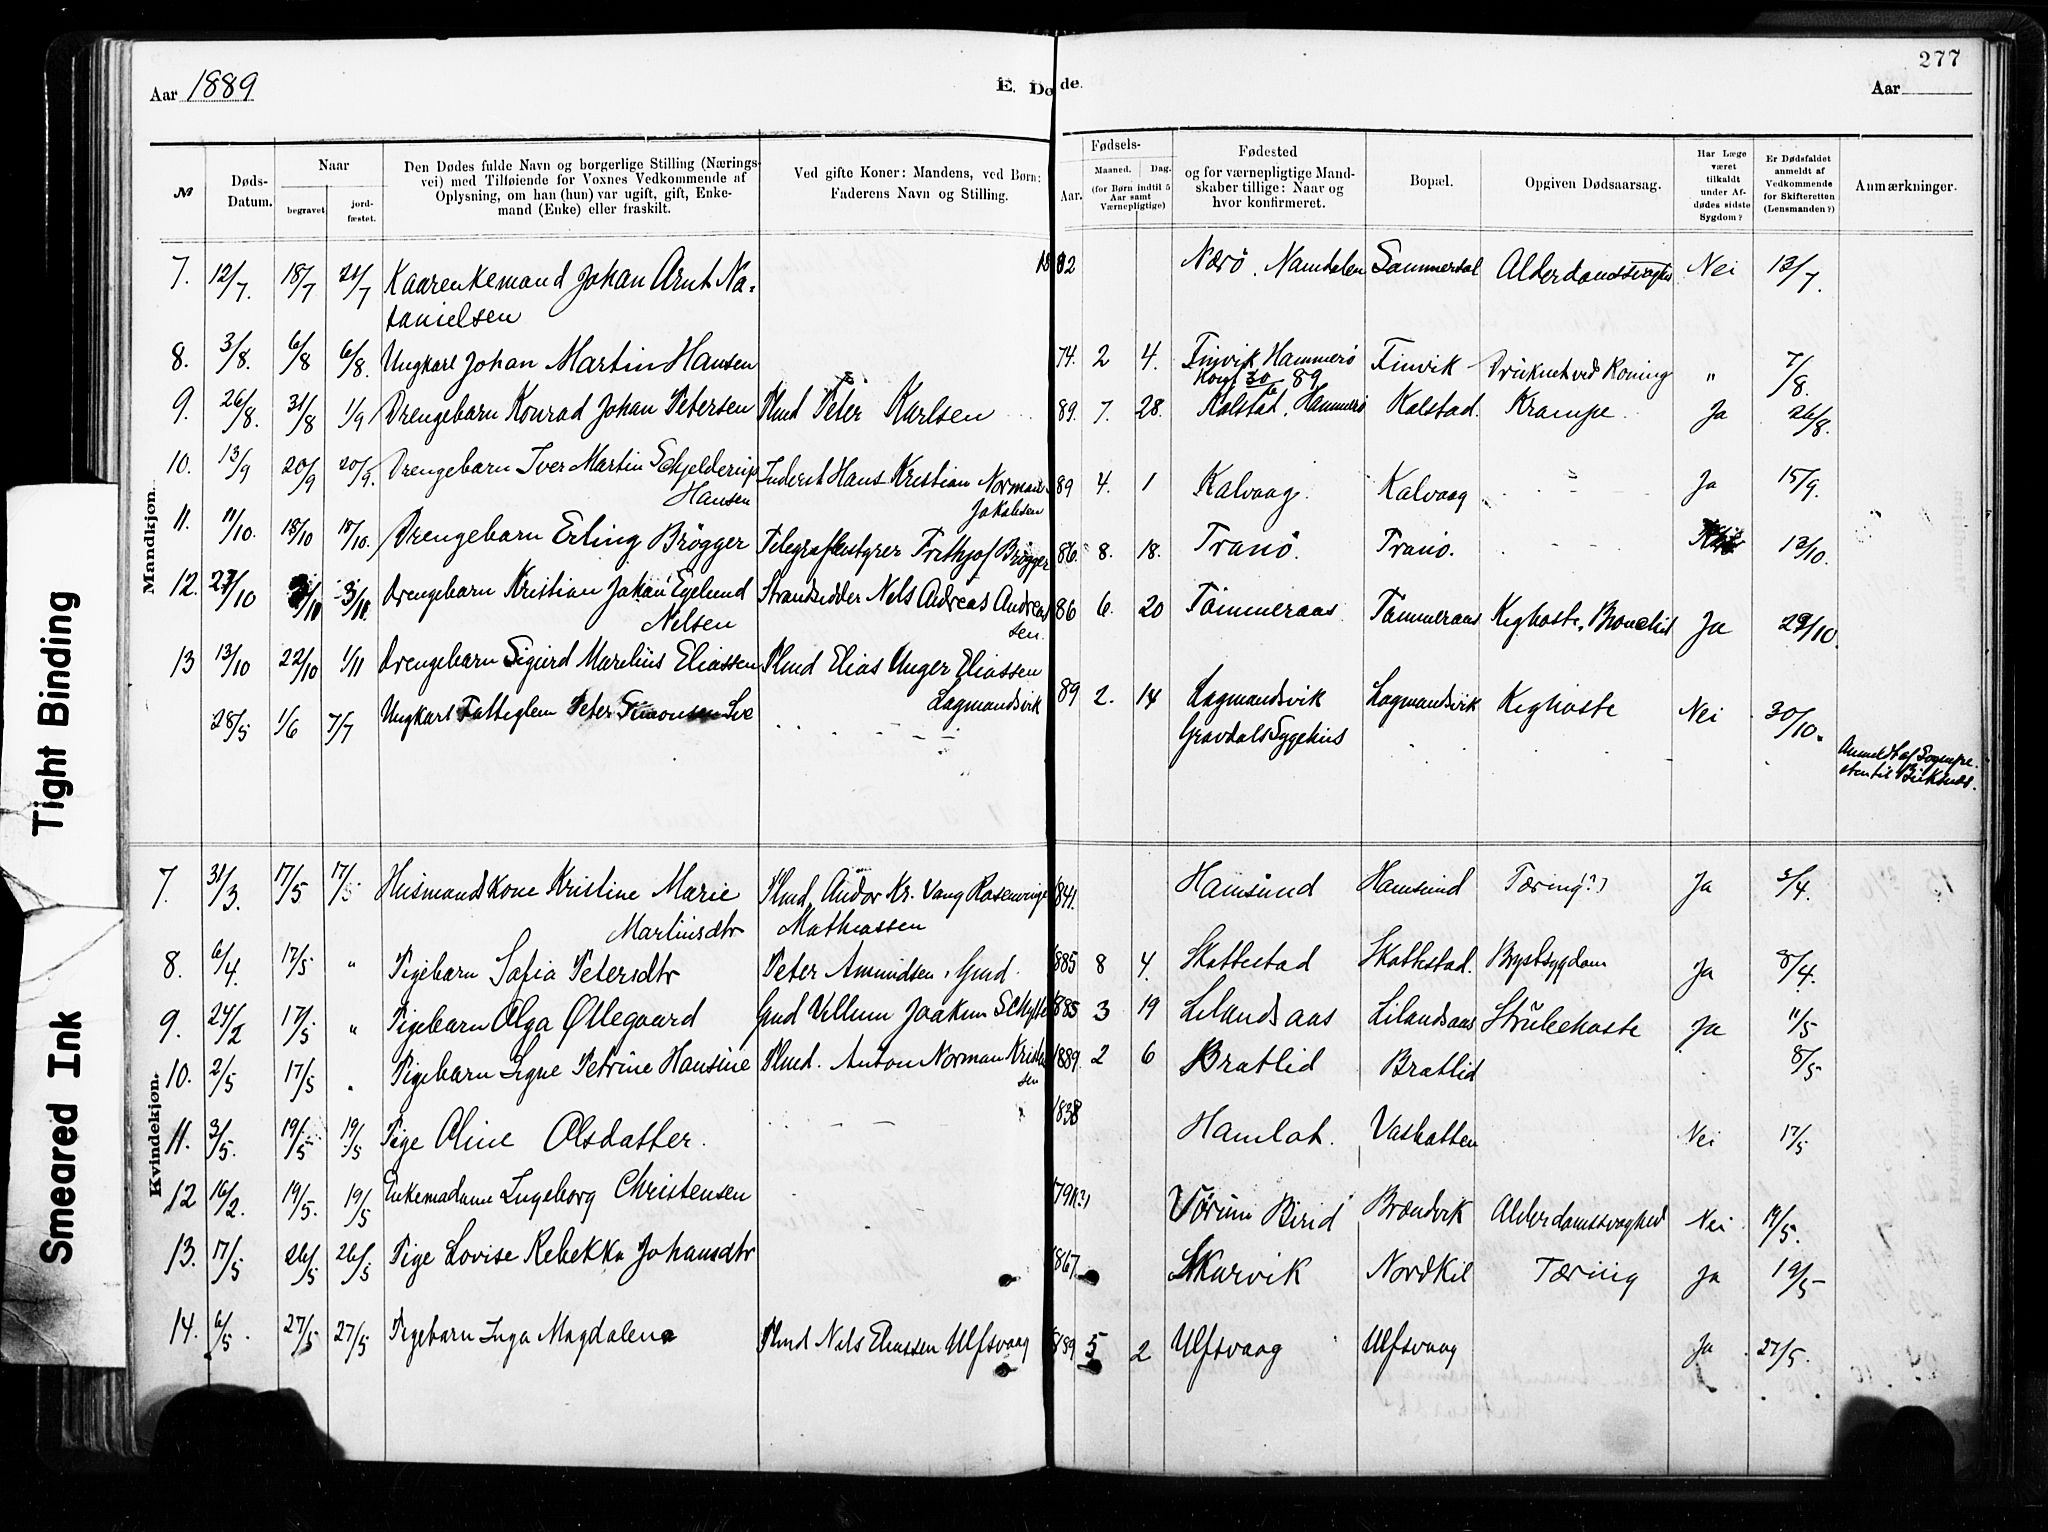 277
Aar 1889
E. Dø de.
Aar
Tight Binding
Smeared Ink
Mandkjøn.
Kvindekjøn.
№ Døds-Datum. Naar begravet. jord-fæstet. Den Dødes fulde Navn og borgerlige Stilling (Nærings-vei) med Tilføiende for Voxnes Vedkommende af Oplysning, om han (hun) var ugift, gift, Enke-mand (Enke) eller fraskilt. Ved gifte Koner: Mandens, ved Børn: Faderens Navn og Stilling. Fødsels- Aar. Maaned. Dag. (for Børn indtil 5 Aar samt Værnepligtige) Fødested og for værnepligtige Mand-skaber tillige: Naar og hvor konfirmeret. Bopæl. Opgiven Dødsaarsag. Har Læge været tilkaldt under Af-dødes sidste Sygdom? Er Dødsfaldet anmeldt af Vedkommende for Skifteretten (Lensmanden?) Anmærkninger.
7. 12/7. 18/7 21/7 Kaarenkemand Johan Arnt Na- Nærø, Namdalen Sommersel Nei 13/7.
tanielsen
8. 3/8. 6/8 6/8. Ungkarl Johan Martin Hansen 74. 2 4. Finvik, Hammerø Finvik Druknet ved Roning " 7/8.
Konf 30/6 89
9. 26/8. 31/8 1/9 Drengebarn Konrad Johan Petersen Plmd Peter Karlsen 89. 7. 28. Kalstad, Hammerø Kalstad. Krampe Ja 26/8.
10. 13/9 20/9 20/9. Drengebarn Iver Martin Schjelderup Inderst Hans Kristian Norman 89 4. 1 Kalvaag. Kalvaag Ja 15/9.
Hansen Jakobsen
11. 11/10. 18/10 18/10. Drengebarn Erling Brøgger Telegrafbestyrer Frithjof Brøgger 86. 8. 18. Tranö. Tranö. 13/10.
12. 27/10 3/10. Drengebarn Kristian Johan Egelund Strandsidder Nels Andreas Andreas 86 6. 20 Tömmeraas Tömmeraas Kighoste, Bronchit Ja 29/10.
Nelsen sen.
13 13/10 22/10 1/11 Drengebarn Sigurd Marelius Eliassen Plmd Elias Unger Eliassen 89 2. 14 Lagmandsvik Lagmandsvik Kighoste Nei 30/10.
Lagmandsvik
28/5 1/6 7/7 Ungkarl Fattiglem Peter Simonsen Gravdals Sygehus
7. 31/3. 17/5 17/5 Husmandskone Kristine Marie Plmd, Andor Kr. Vang Rosenvinge 1841. Hamsund Hamsund Tæring(?) Ja 3/4.
Martinsdtr Mathiassen
8. 6/4. 17/5 " Pigebarn Sofia Petersdtr Peter Amundsen, Gmd. 1885 8 4. Skottestad Skottestad. Brystsygdom Ja 8/4.
9. 24/2 17/5 " Pigebarn Olga Øllegaard Gmd Villum Joakim Schytte 1885 3 19 Lilandsaas Lilandsaas Strubehoste Ja 11/5
10. 2/5 17/5 " Pigebarn Signe Petrine Hansine Plmd. Anton Norman Kristian 1889. 2 6 Bratlid Bratlid 8/5
sen
11. 3/5. 19/5 19/5 Pige Oline Olsdatter. 1838 Hamlot. Vasbotten Nei 17/5
12 16/2. 19/5. 19/5 Enkemadame Ingeborg Christensen 179 (?) Birid Brændvik Alderdomssvaghed Nei 19/5.
13. 17/5 26/5 26/5 Pige Lovise Rebekka Johansdtr 1867. Skarvik Nordkil Tæring Ja 19/5
14. 6/5. 27/5 27/5 Pigebarn Inga Magdalena Plmd Nels Eliassen Ulfsvaag 1889 5 2 Ulfsvaag Ulfsvaag Ja 27/5.